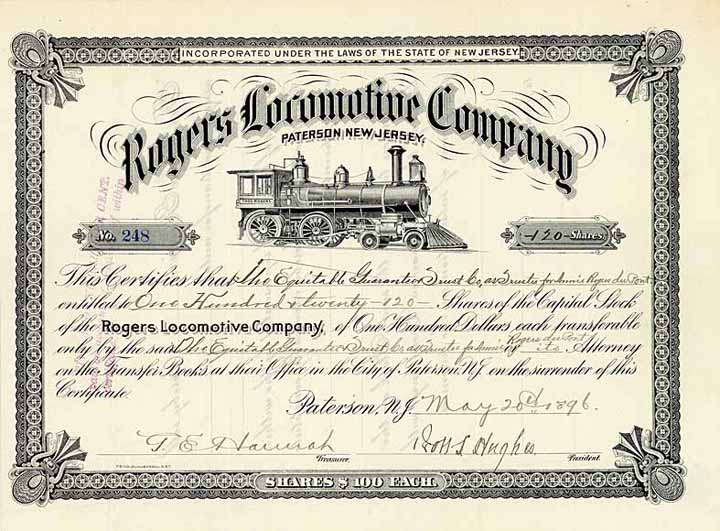 INCORPORATED UNDER THE LAWS OF THE STATE OF NEW JERSEY.
Rogers Locomotive Company
PATERSON NEW JERSEY.
No. 248
-120- Shares
CENT.
within
This Certifies that The Equitable Guarantee & Trust Co, as Trustee for Annie Rogers du Pont
entitled to One Hundred & twenty -120- Shares of the Capital Stock
of the Rogers Locomotive Company, of One Hundred Dollars each transferable
only by the said The Equitable Guarantee & Trust Co. as Trustee for Annie Rogers du Pont or its Attorney
on the Transfer Books at their Office in the City of Paterson, N.J. on the surrender of this
Certificate.
Paterson, N.J. May 20th 1896.
Treasurer.
Hughes.
President.
SHARES $100 EACH.